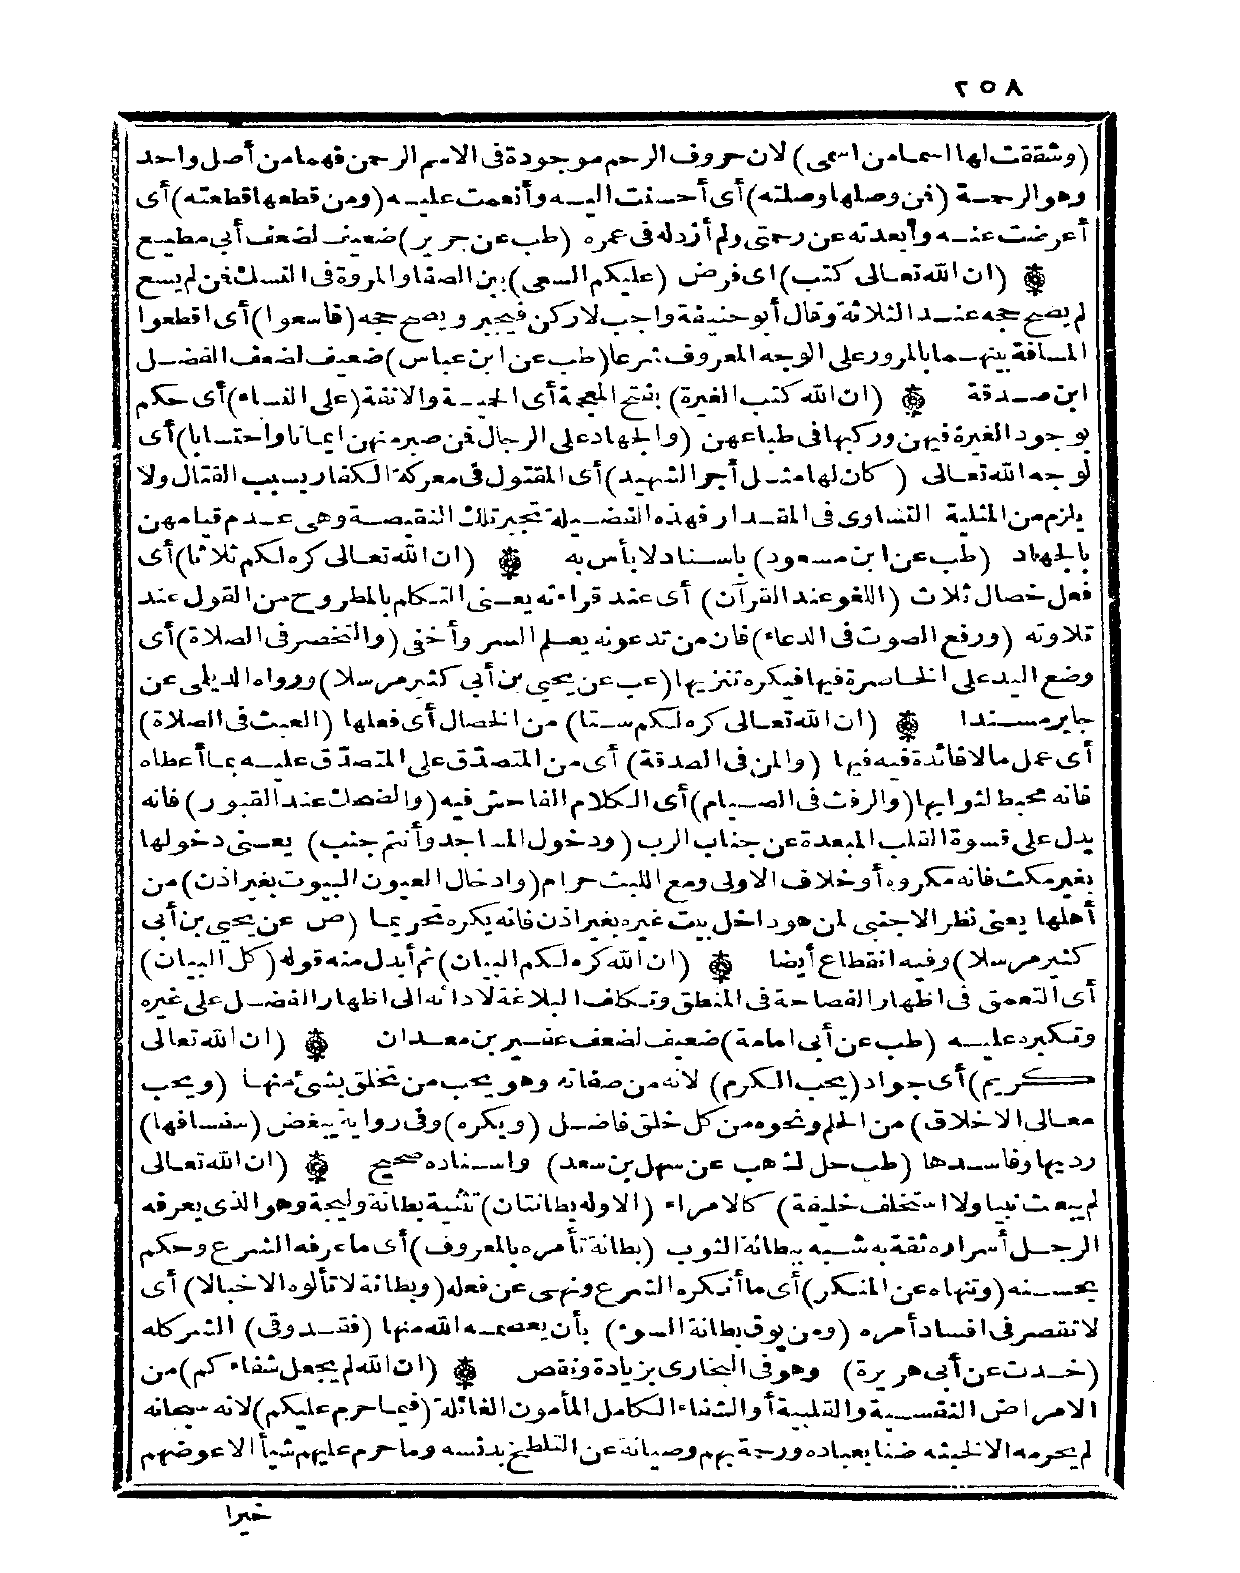 ٢٥٨
(وشققت لها اسما من اسمى) لان حروف الرحم موجودة فى الاسم الرحمن فهما من أصل واحد
وهو الرحمة (فمن وصلها وصلته) أى أحسنت اليه وأنعمت عليه (ومن قطعها قطعته) أى
أعرضت عنه وأبعدته عن رحمتى ولم أزد له فى عمره (طب عن جرير) ضعيف لضعف أبى مطيع
(ان الله تعالى كتب) اى فرض (عليكم السعى) بين الصفا والمروة فى النسك فمن لم يسع
لم يصح حجه عند الثلاثة وقال أبو حنيفة واجب لاركن فيجبر ويصح حجه (فاسعوا) أى اقطعوا
المسافة بينهما بالمرور على الوجه المعروف شرعا (طب عن ابن عباس) ضعيف لضعف الفضل
ابن صدقة (ان الله كتب الغيرة) بفتح المعجمة أى الحمية والانفة (على النساء) أى حكم
بوجود الغيرة فيهن وركبها فى طباعهن (والجهاد على الرجال فمن صبر منهن ايمانا واحتسابا) أى
لوجه الله تعالى (كان لها مثل أجر الشهيد) أى المقتول فى معركة الكفار بسبب القتال ولا
يلزم من المثلية التساوى فى المقدار فهذه الفضيلة تجبر تلك النقيصة وهى عدم قيامهن
بالجهاد (طب عن ابن مسعود) باسناد لا بأس به (ان الله تعالى كره لكم ثلاثا) أى
فعل خصال ثلاث (اللغو عند القرآن) أى عند قراءته يعنى التكلم بالمطروح من القول عند
تلاوته (ورفع الصوت فى الدعاء) فان من تدعونه يعلم السر وأخفى (والتخصر فى الصلاة) أى
وضع اليد على الخاصرة فيها فيكره تنزيها (عب عن يحيى بن أبى كثير مرسلا) ورواه الديلمى عن
جابر مسندا (ان الله تعالى كره لكم ستا) من الخصال أى فعلها (العبث فى الصلاة)
أى عمل ما لا فائدة فيه فيها (والمن فى الصدقة) أى من المتصدق على المتصدق عليه بما أعطاه
فانه محبط لثوابها (والرفث فى الصيام) أى الكلام الفاحش فيه (والضحك عند القبور) فانه
يدل على قسوة القلب المبعدة عن جناب الرب (ودخول المساجد وأنتم جنب) يعنى دخولها
بغير مكث فانه مكروه أو خلاف الاولى ومع اللبث حرام (وادخال العيون البيوت بغير اذن) من
أهلها يعنى نظر الاجنبى لمن هو داخل بيت غيره بغير اذن فانه يكره تحريما (ص عن يحيى بن أبى
كثير مرسلا) وفيه انقطاع أيضا (ان الله كره لكم البيان) ثم أبدل منه قوله (كل البيان)
أى التعمق فى اظهار الفصاحة فى المنطق وتكلف البلاغة لادائه الى اظهار الفضل على غيره
وتكبره عليه (طب عن أبى امامة) ضعيف لضعف عفير بن معدان (ان الله تعالى
كريم) أى جواد (يحب الكرم) لانه من صفاته وهو يحب من تخلق بشئ منها (ويحب
معالى الاخلاق) من الحلم ونحوه من كل خلق فاضل (ويكره) وفى رواية يبغض (سفسافها)
رديها وفاسدها (طب حل ك هب عن سهل بن سعد) واسناده صحيح (ان الله تعالى
لم يبعث نبيا ولا استخلف خليفة) كالامراء (الا وله بطانتان) تثنية بطانة وليجة وهو الذى يعرفه
الرجل أسراره ثقة به شبه ببطانة الثوب (بطانة تأمره بالمعروف) أى ما عرفه الشرع وحكم
بحسنه (وتنهاه عن المنكر) أى ما أنكره الشرع ونهى عن فعله (وبطانة لا تألوه الا خبالا) أى
لا تقصر فى افساد أمره (ومن يوق بطانة السوء) بأن يعصمه الله منها (فقد وقى) الشر كله
(خد ت عن أبى هريرة) وهو فى البخارى بزيادة ونقص (ان الله لم يجعل شفاءكم) من
الامراض النفسية والقلبية أو الشفاء الكامل المأمون الغائلة (فيما حرم عليكم) لانه سبحانه
لم يحرمه الا لخبثه ضنا بعباده ورحمة بهم وصيانة عن التلطخ بدنسه وما حرم عليهم شيأ الا عوضهم
خيرا